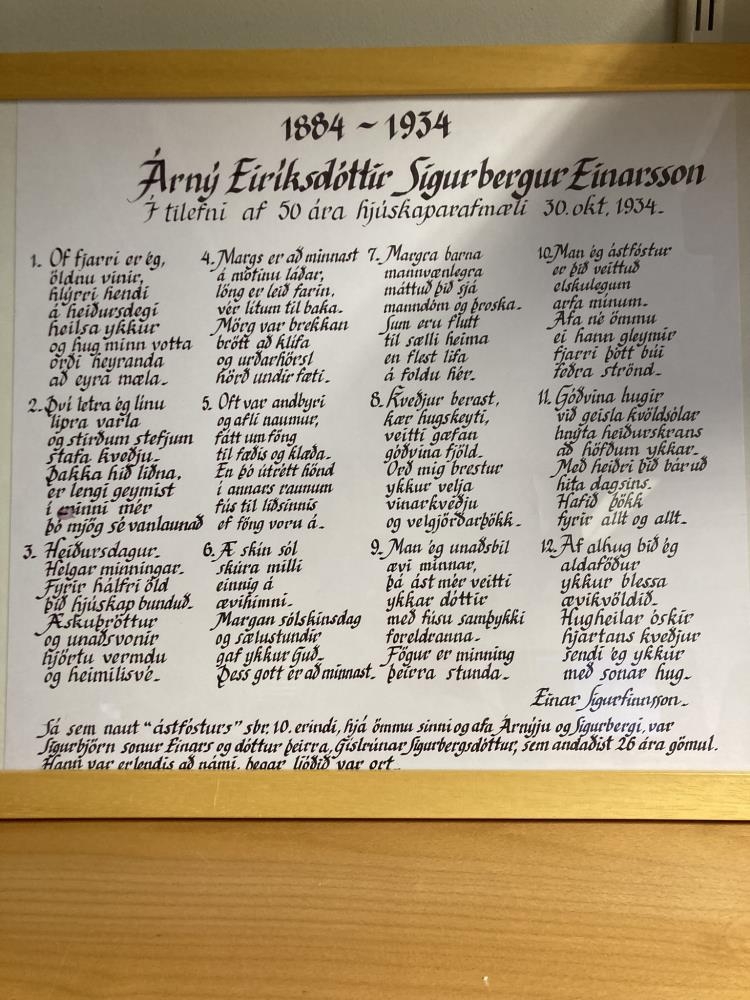 1884 ~ 1934
Árný Eiríksdóttir Sigurbergur Einarsson
Í tilefni af 50 ára hjúskaparafmæli 30. okt. 1934.
1. Of fjarri er ég,
öldnu vinir,
hlýrri hendi
á heiðursdegi
heilsa ykkur
og hug minn votta
orði heyranda
að eyra mæla.
2. Því letra ég línu
lipra varla
og stirðum stefjum
stafa kveðju.
Þakka hið liðna,
er lengi geymist
í minni mér
þó mjög sé vanlaunað
3. Heiðursdagur.
Helgar minningar.
Fyrir hálfri öld
þið hjúskap bunduð.
Æskuþróttur
og unaðsvonir
hjörtu vermdu
og heimilisvé.
4. Margs er að minnast
á mótinu láðar,
löng er leið farin,
vér lítum til baka.
Mörg var brekkan
brött að klífa
og urðarhörsl
hörð undir fæti.
5. Oft var andbyri
og afli naumur,
fátt um föng
til fæðis og klæða.
En þó útrétt hönd
í annars raunum
fús til liðsinnis
ef föng voru á.
6. Æ skín sól
skúra milli
einnig á
ævihimni.
Margan sólskinsdag
og sælustundir
gaf ykkur Guð.
Þess gott er að minnast.
7. Margra barna
mannvænlegra
máttuð þið sjá
manndóm og þroska.
Sum eru flutt
til sælli heima
en flest lifa
á foldu hér.
8. Kveðjur berast,
kær hugskeyti,
veitti gæfan
góðvina fjöld.
Orð mig brestur
ykkur velja
vinarkveðju
og velgjörðarþökk.
9. Man ég unaðsbil
ævi minnar,
þá ást mér veitti
ykkar dóttir
með fúsu samþykki
foreldranna.
Fögur er minning
þeirra stunda.
10. Man ég ástfóstur
er þið veittuð
elskulegum
arfa mínum.
Afa né ömmu
ei hann gleymir
fjarri þótt búi
feðra strönd.
11. Góðvina hugir
við geisla kvöldsólar
hnýta heiðurskrans
að höfðum ykkar.
Með heiðri þið báruð
hita dagsins.
Hafið þökk
fyrir allt og allt.
12. Af alhug bið ég
aldaföður
ykkur blessa
ævikvöldið.
Hugheilar óskir
hjartans kveðjur
sendi ég ykkur
með sonar hug.
Einar Sigurfinnsson.
Sá sem naut "ástfósturs" sbr. 10. erindi, hjá ömmu sinni og afa Árnýju og Sigurbergi, var
Sigurbjörn sonur Einars og dóttur þeirra, Gíslrúnar Sigurbergsdóttur, sem andaðist 26 ára gömul.
Hann var erlendis að námi, þegar ljóðið var ort.